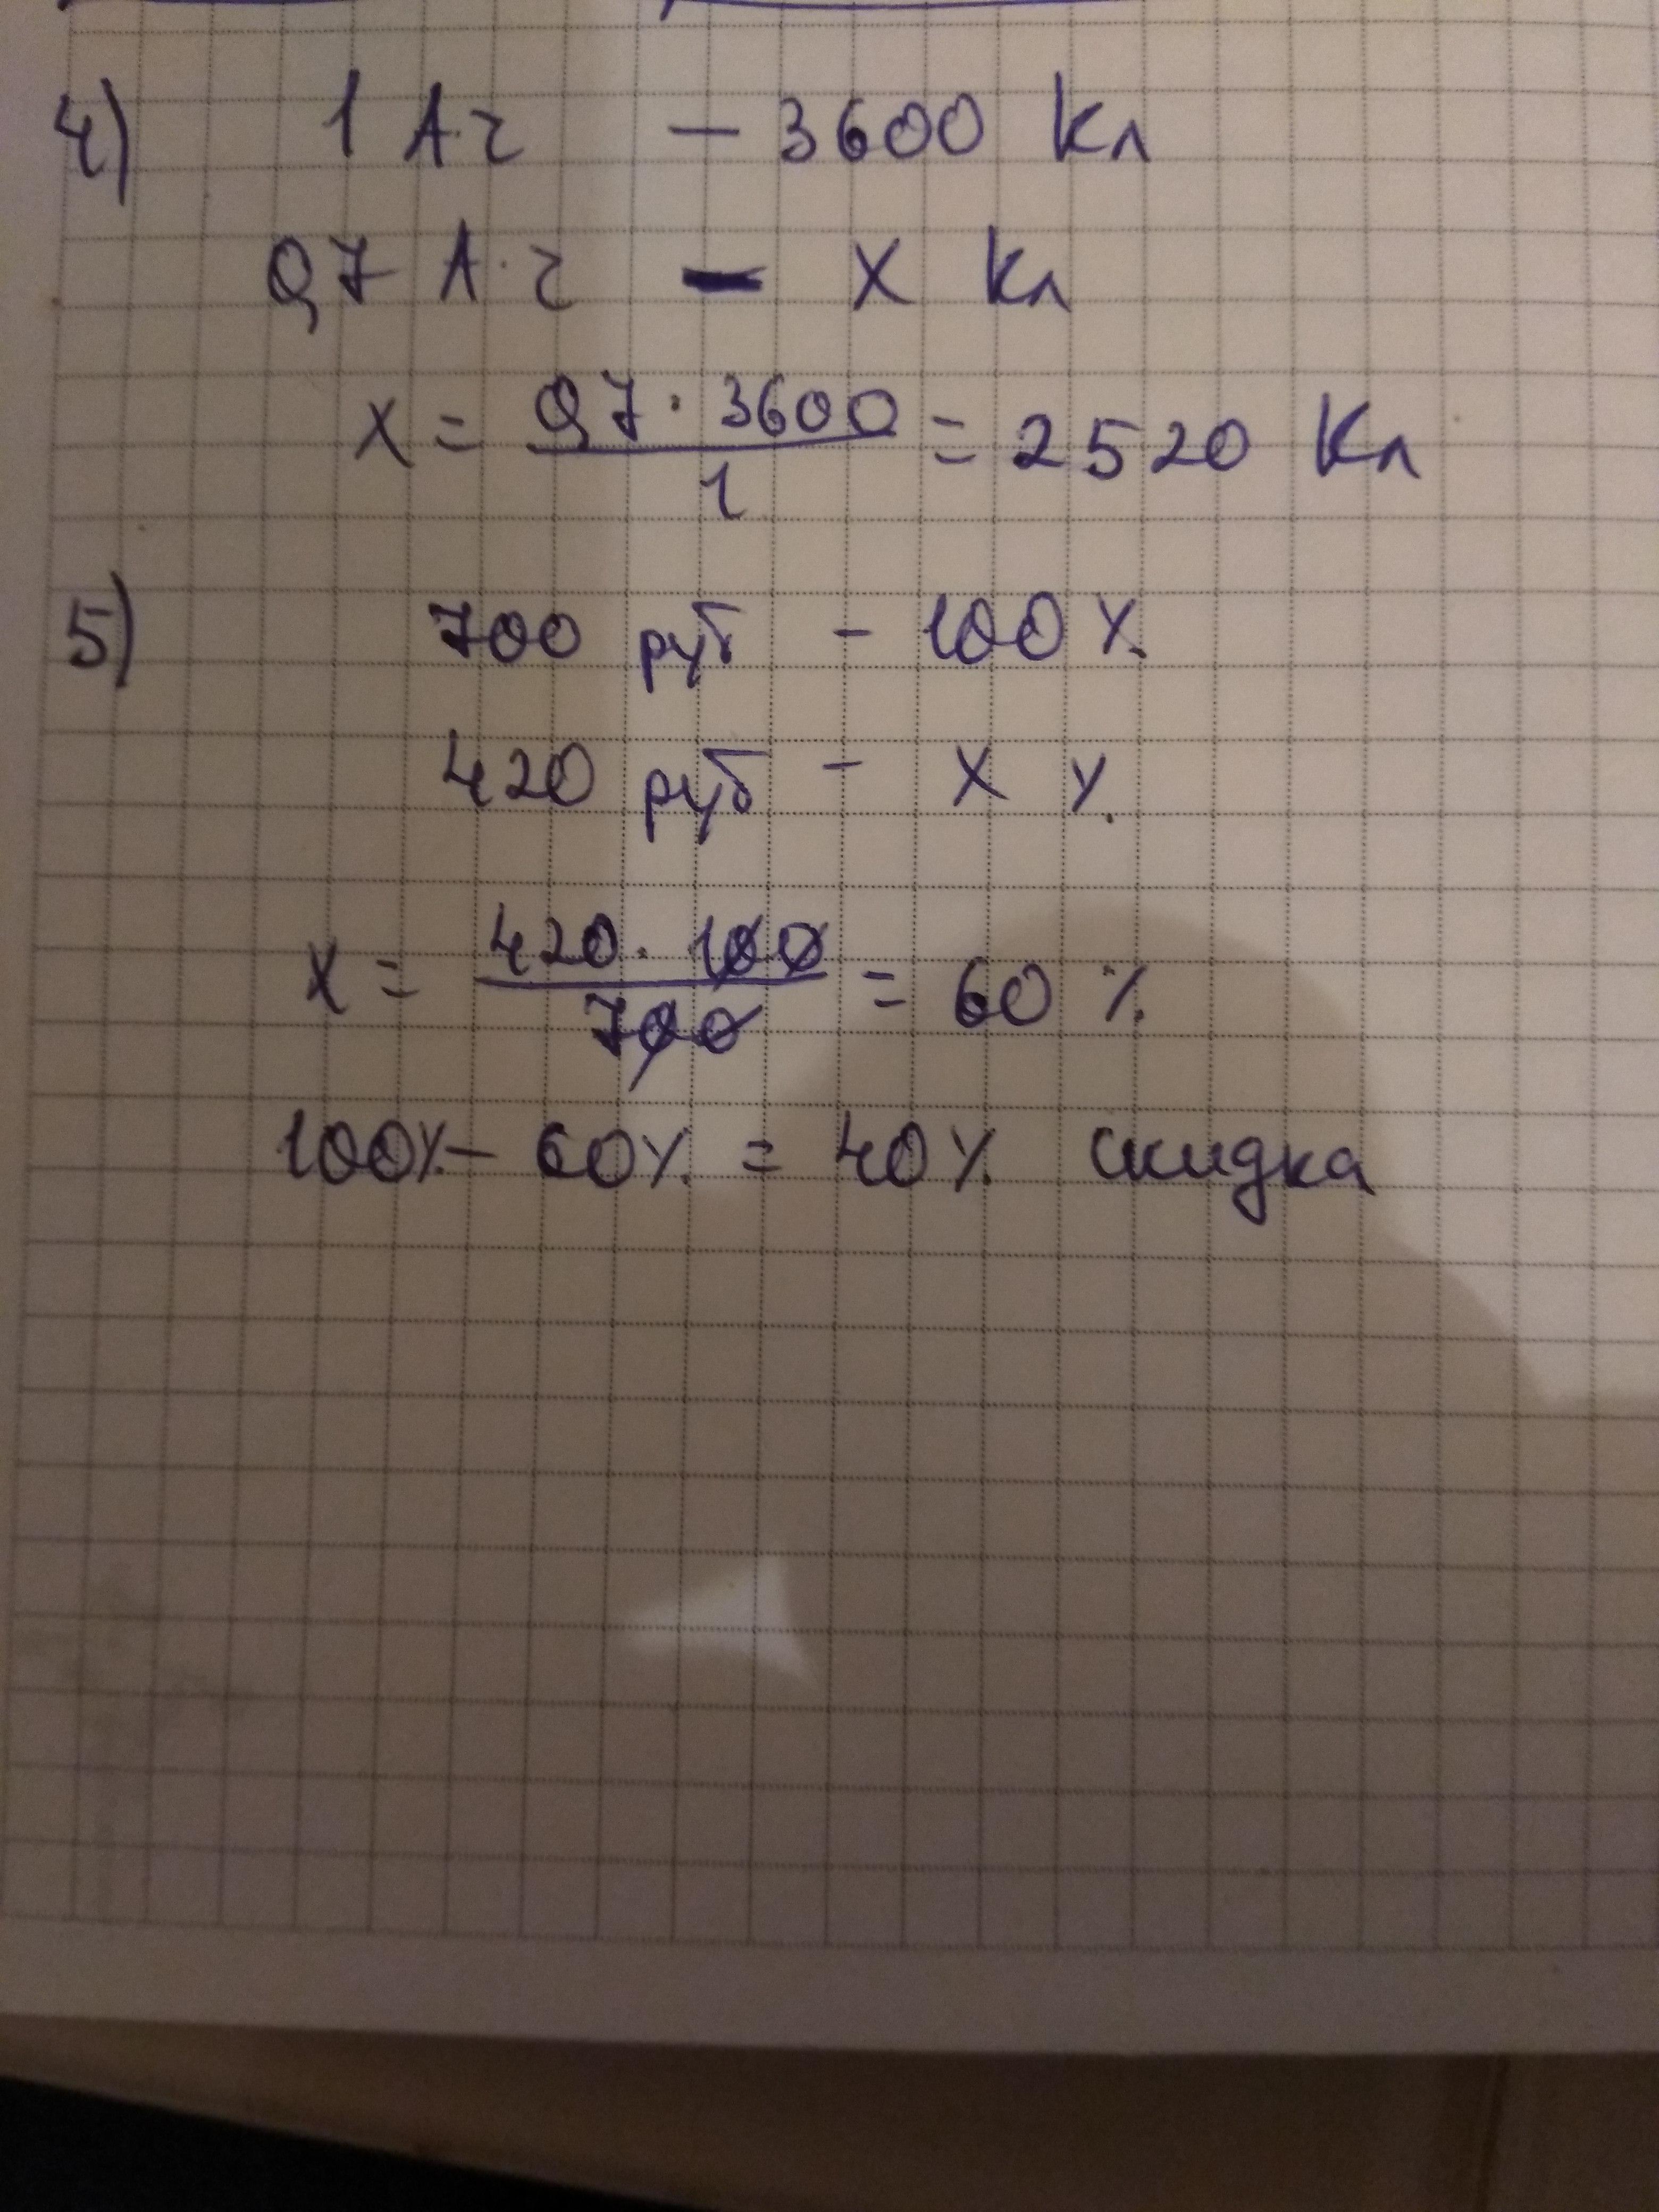 4) 1 А·ч — 3600 Кл
0,7 А·ч — x Кл
x = 0,7 · 3600 / 1 = 2520 Кл
5) 700 руб – 100 %
420 руб – x %
x = 420 · 100 / 700 = 60 %
100% – 60% = 40% скидка